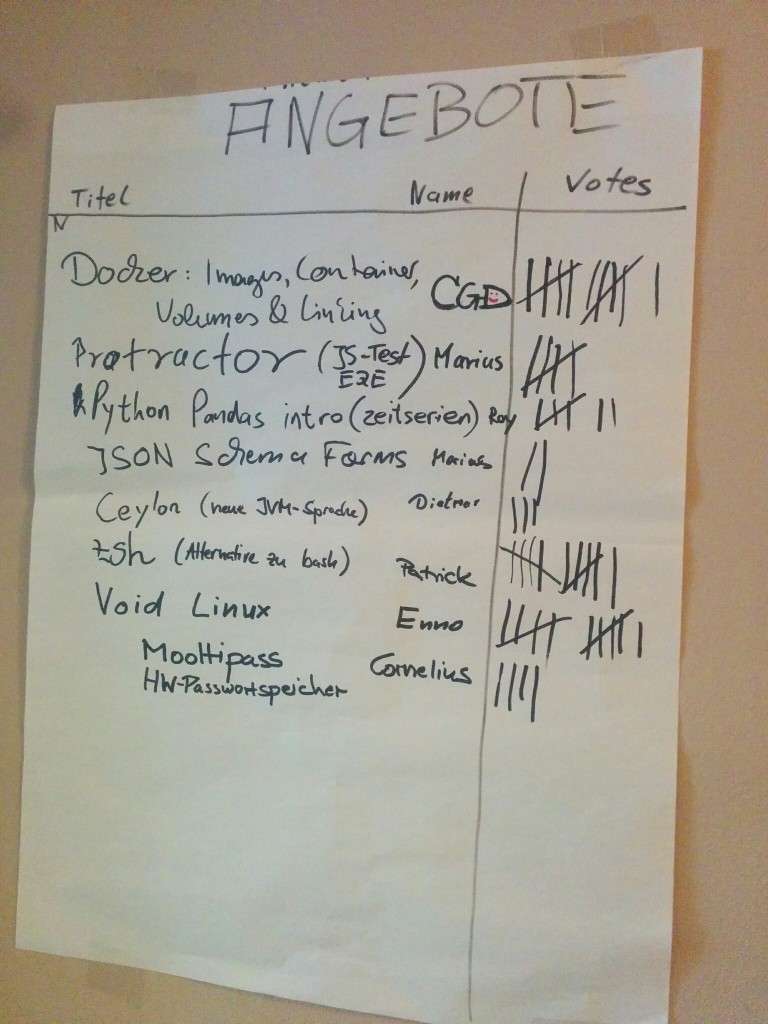 ANGEBOTE
Titel Name Votes
N
Docker: Images, Container, CGD
Volumes & Linking
Protractor (JS-Test E2E) Marius
Python Pandas intro (zeitserien) Roy
JSON Schema Forms Marius
Ceylon (neue JVM-Sprache) Dietmar
Zsh (Alternative zu bash) Patrick
Void Linux Enno
Mooltipass Cornelius
HW-Passwortspeicher